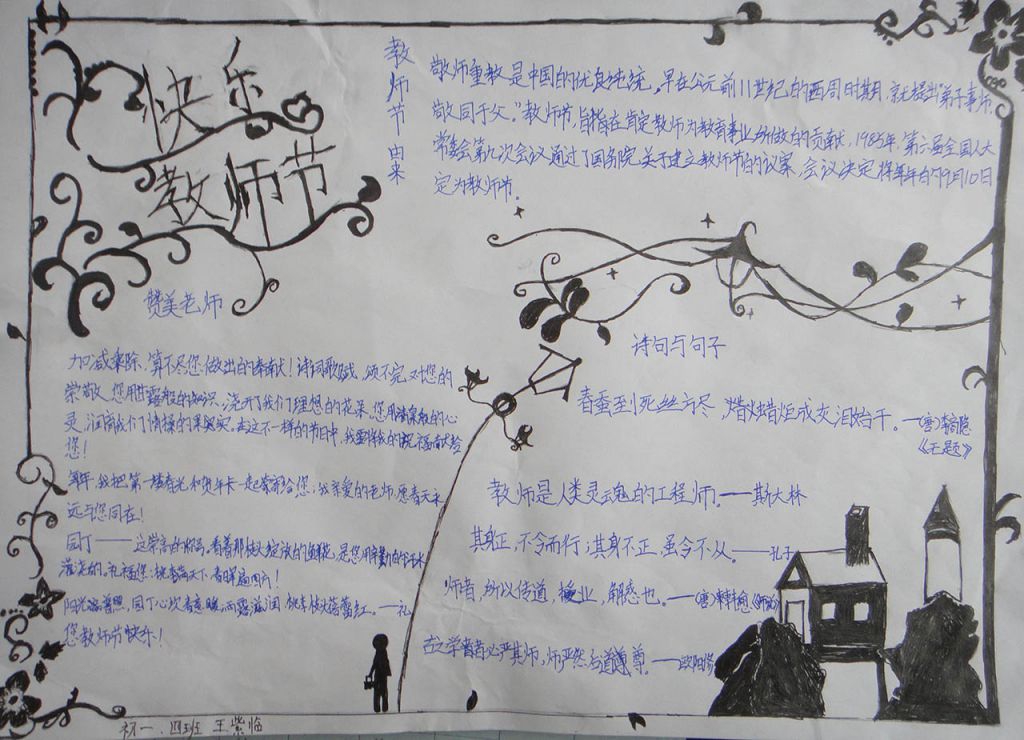 快乐
教师节
教师节由来
敬师重教是中国的优良传统。早在公元前11世纪的西周时期,就提出"弟子事师,
敬同于父。"教师节,旨在肯定教师为教育事业所做的贡献,1985年,第六届全国人大
常委会第九次会议通过了国务院关于建立教师节的议案,会议决定将每年的9月10日
定为教师节。
赞美老师
加减乘除,算不尽您做出的奉献!诗词歌赋,颂不完对您的
崇敬。您用甘露般的知识,浇开了我们理想的花朵,您用清泉般的心
灵,润育我们情操的果实。在这不一样的节日中,我要将我的祝福献给
您!
每年,我把第一缕春光和贺年卡一起寄给您:我亲爱的老师,愿春天永
远与您同在!
园丁——这崇高的称号。看着那绽放的鲜花,是您用辛勤的汗水
滋润的。祝福您:桃李满天下,春晖遍四方!
阳光普照,园丁心坎春意暖,雨露滋润,桃李枝头蓓蕾红。——礼
您教师节快乐!
诗句与句子
春蚕到死丝方尽,蜡炬成灰泪始干。——(唐)李商隐
《无题》
教师是人类灵魂的工程师。——斯大林
其身正,不令而行;其身不正,虽令不从。——孔子
师者,所以传道,授业,解惑也。——(唐)韩愈《师说》
古之学者必严其师,师严然后道尊。——欧阳修
初一.四班 王紫临